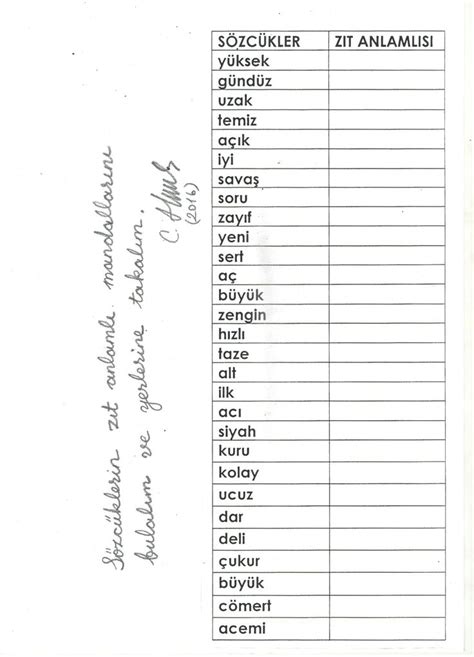 Sözcüklerin zıt anlamlı mandallarını
bulalım ve yerlerine takalım.
(2016)
SÖZCÜKLER ZIT ANLAMLISI
yüksek
gündüz
uzak
temiz
açık
iyi
savaş
soru
zayıf
yeni
sert
aç
büyük
zengin
hızlı
taze
alt
ilk
acı
siyah
kuru
kolay
ucuz
dar
deli
çukur
büyük
cömert
acemi